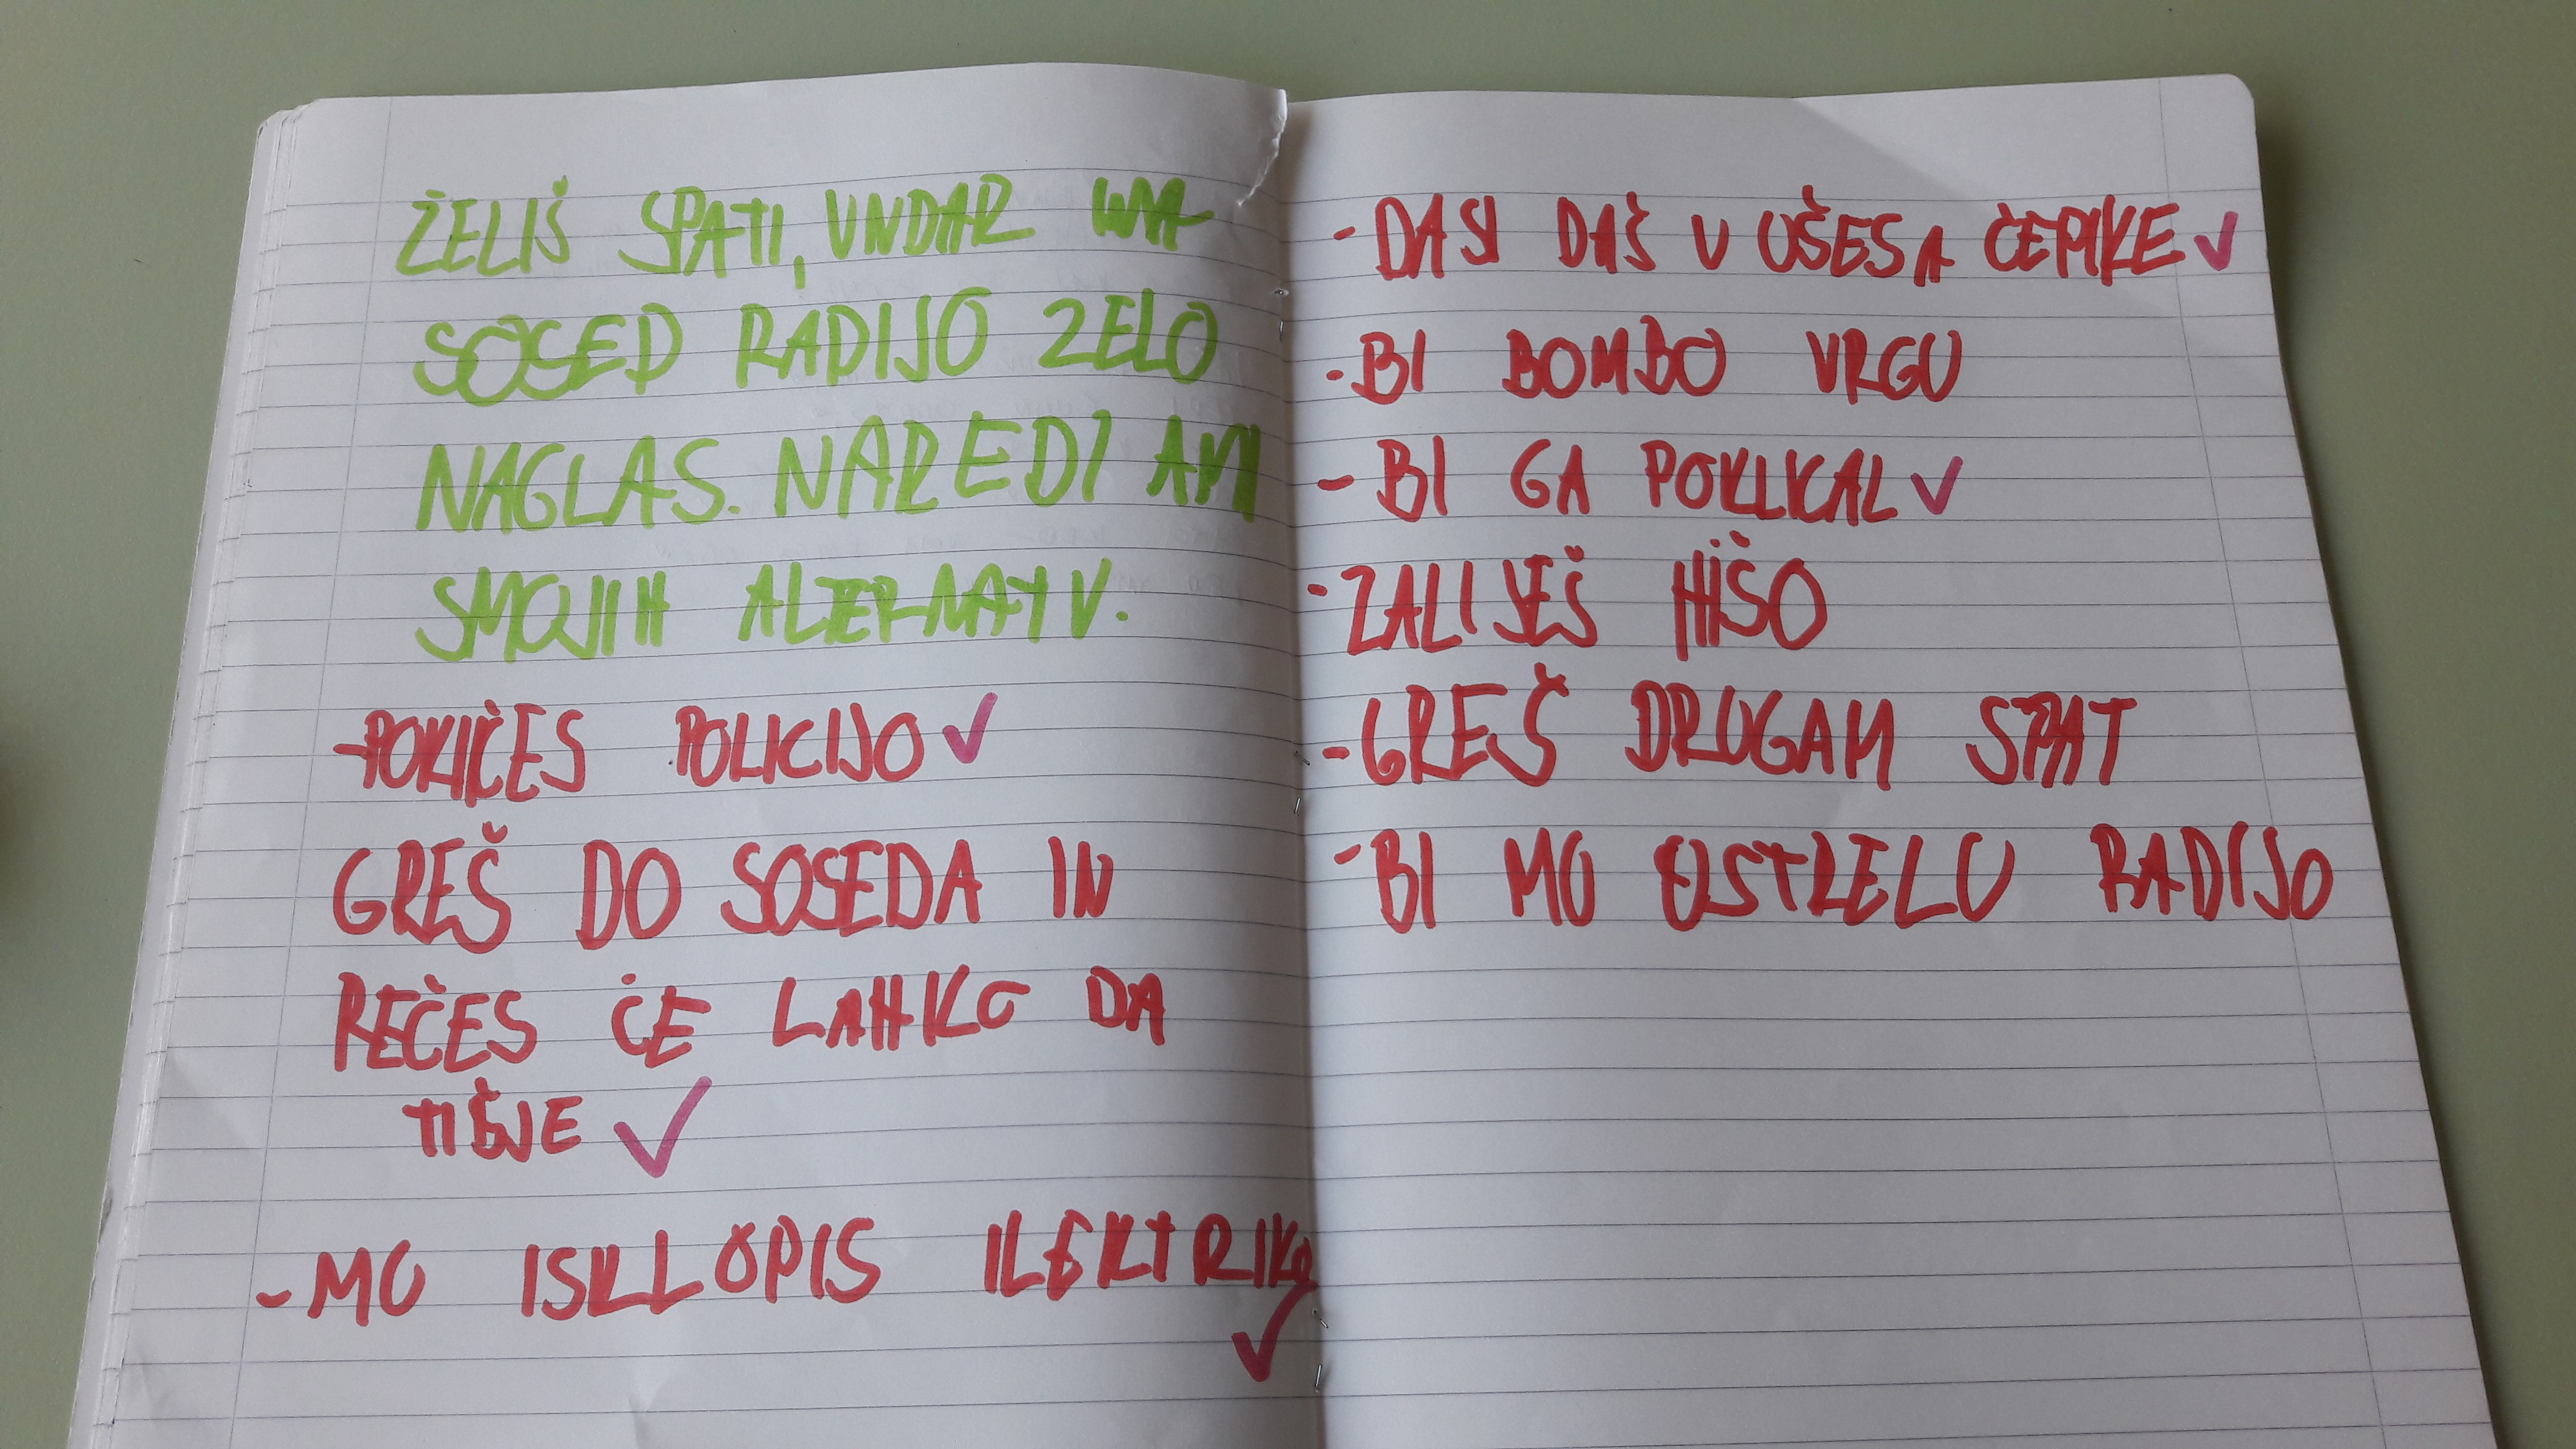 ŽELIŠ SPATI, VNDAR IMA
SOSED RADIJO ZELO
NAGLAS. NAREDI
ALTERNATIV.
-POKIČES POLICIJO ✓
GREŠ DO SOSEDA IN
REČES ČE LAHKO DA
TIŠJE ✓
-MU ISKLOPIS ILEKTRIKO
✓
-DA SI DAŠ V UŠESA ČEPIKE ✓
-BI BOMBO VRGU
-BI GA POKLICAL ✓
-ZALIJEŠ HIŠO
-GREŠ DRUGAM SPAT
-BI MU USTRELU RADIJO